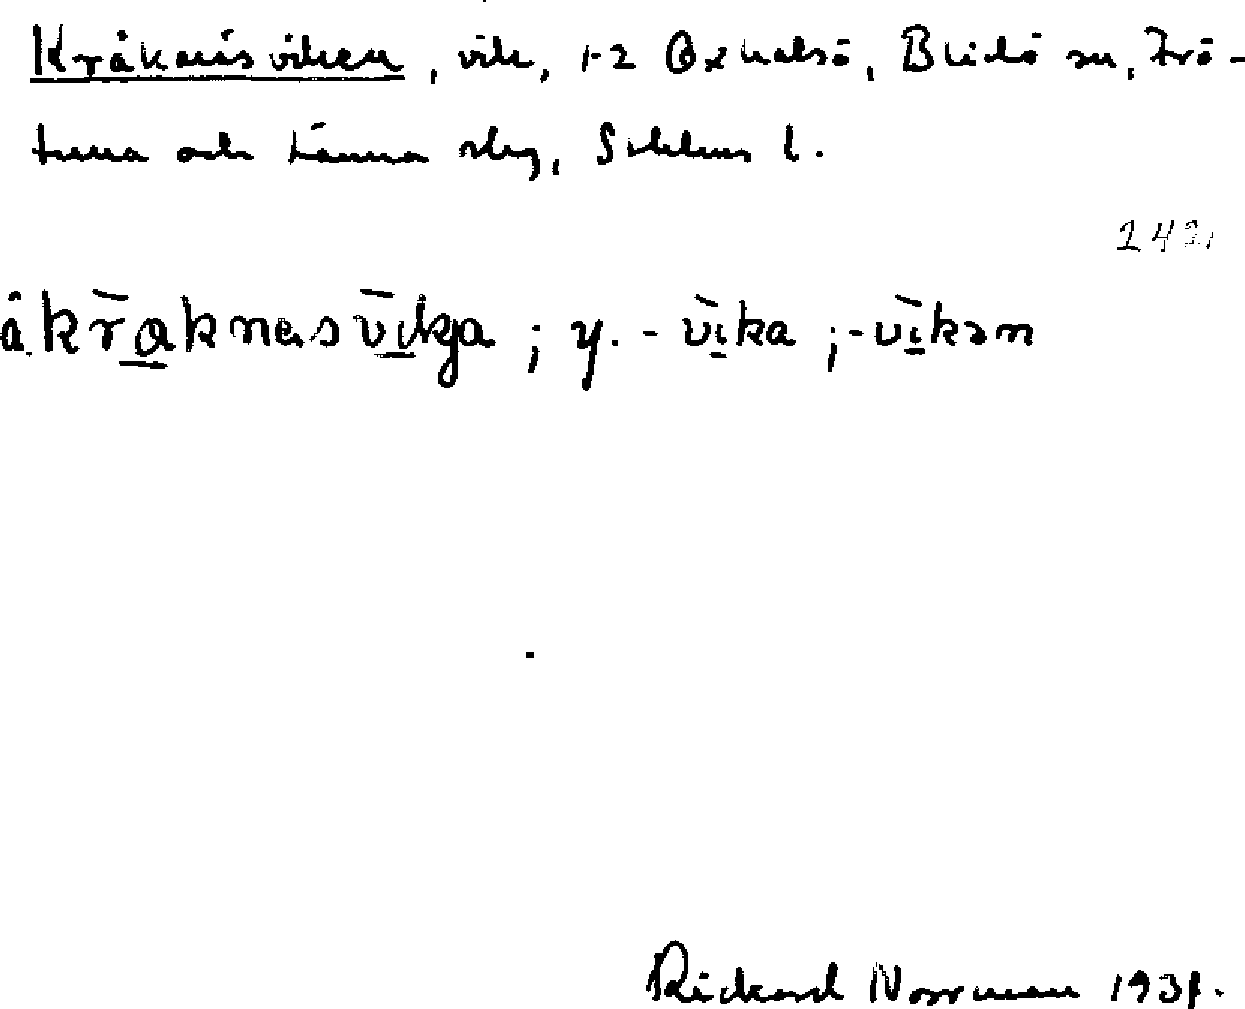 Kråknäsviken, vik, 1-2 Oxhalsö, Blidö sn, Frö-
tuna och Länna slg, Sthlms l.
å kr̄aknasv̄ikja ; y. - v̄ika ; - v̄ikən
Rickard Norrman 1931.